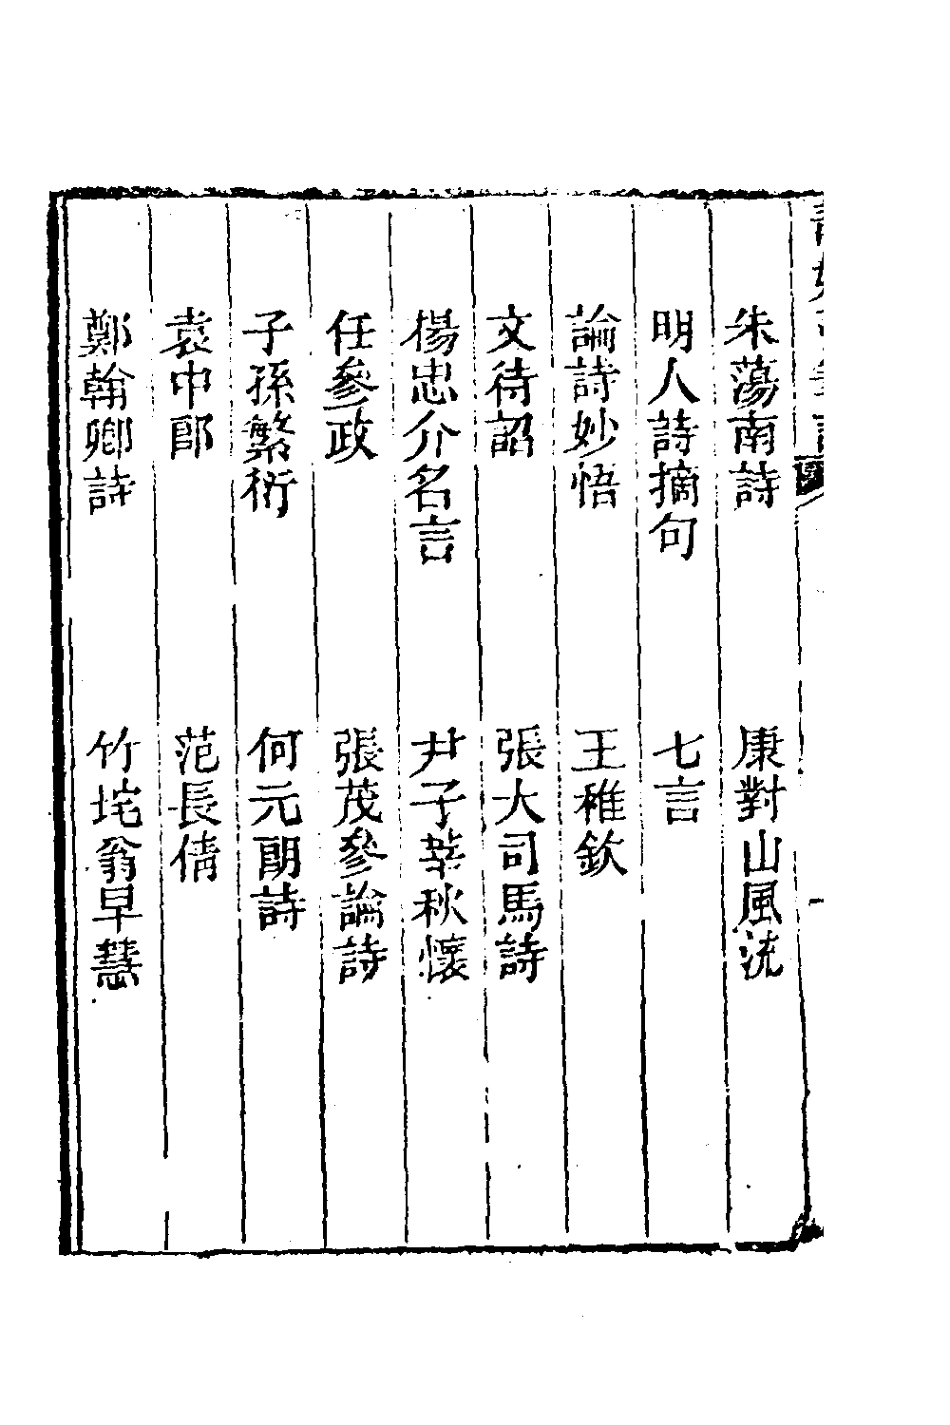 朱蕩南詩　康對山風流
明人詩摘句　七言
論詩妙悟　王稚欽
文待詔　張大司馬詩
楊忠介名言　尹子莘秋懷
任參政　張茂參論詩
子孫繁衍　何元朗詩
袁中郎　范長倩
鄭翰卿詩　竹垞翁早慧